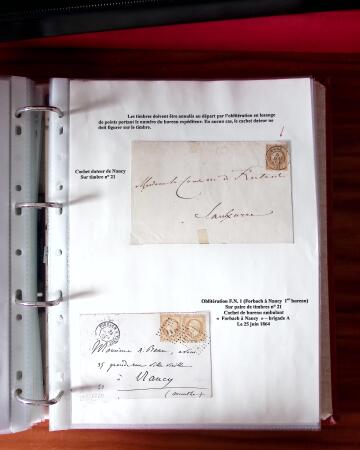 Les timbres doivent être annulés au départ par l'oblitération en losange
de points portant le numéro du bureau expéditeur. En aucun cas, le cachet dateur ne
doit figurer sur le timbre.
Cachet dateur de Nancy
Sur timbre n° 21
Madame la Comtesse de
Oblitération F.N. 1 (Forbach à Nancy 1er bureau)
Sur paire de timbres n° 21
Cachet de bureau ambulant
« Forbach à Nancy » – brigade A
Le 25 juin 1864
Monsieur
35 grande rue ville vieille
à Nancy
(meurthe)